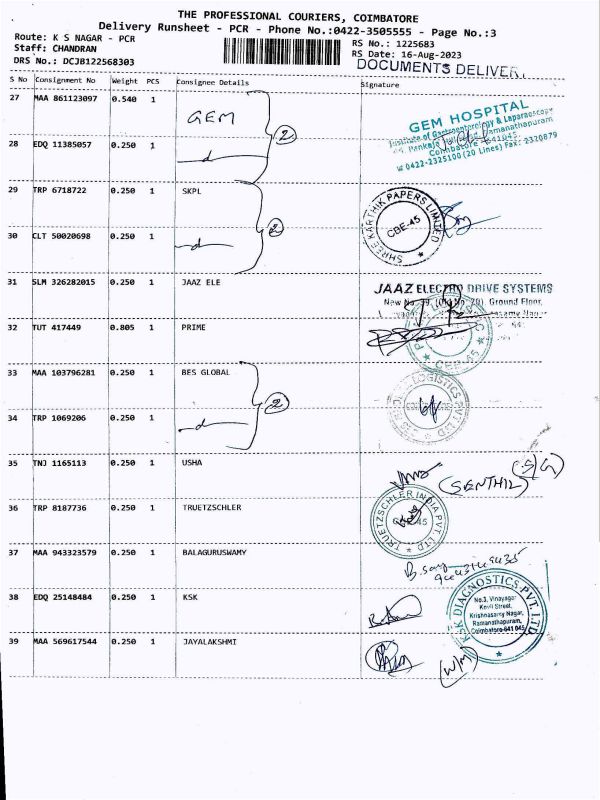 THE PROFESSIONAL COURIERS, COIMBATORE
Delivery Runsheet - PCR - Phone No.:0422-3505555 - Page No.:3
Route: K S NAGAR - PCR
RS No.: 1225683
Staff: CHANDRAN
RS Date: 16-Aug-2023
DRS No.: DCJB122568303
DOCUMENTS DELIVER
S No Consignment No Weight PCS Consignee Details Signature
27 MAA 861123097 0.540 1 GEM
2
GEM HOSPITAL
Institute of Gastroenterology & Laparoscopy
Ramanathapuram
Coimbatore - 641045.
0422-2325100 (20 Lines) Fax: 2320879
28 EDQ 11385057 0.250 1
29 TRP 6718722 0.250 1 SKPL
2
SHREE KARTHIK PAPERS LIMITED
CBE-45
30 CLT 50020698 0.250 1
31 SLM 326282015 0.250 1 JAAZ ELE
JAAZ ELECTRO DRIVE SYSTEMS
New No. 39, (Old No. 79), Ground Floor,
32 TUT 417449 0.805 1 PRIME
CBE-45
33 MAA 103796281 0.250 1 BES GLOBAL
2
LOGISTICS PVT LTD
34 TRP 1069206 0.250 1
35 TNJ 1165113 0.250 1 USHA
(SENTHIL)
(S/G)
36 TRP 8187736 0.250 1 TRUETZSCHLER
TRUETZSCHLER INDIA PVT LTD
37 MAA 943323579 0.250 1 BALAGURUSWAMY
38 EDQ 25148484 0.250 1 KSK
KSK DIAGNOSTICS PVT. LTD
No.3, Vinayagar
Kovil Street,
Krishnasamy Nagar,
Ramanathapuram,
Coimbatore-641 045
39 MAA 569617544 0.250 1 JAYALAKSHMI
(W/M)